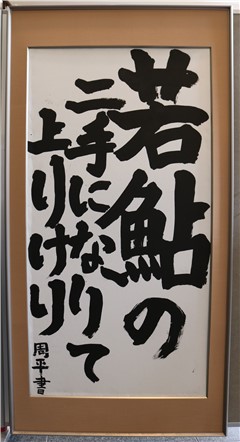 若鮎の
二手になりて
上りけり
周平書